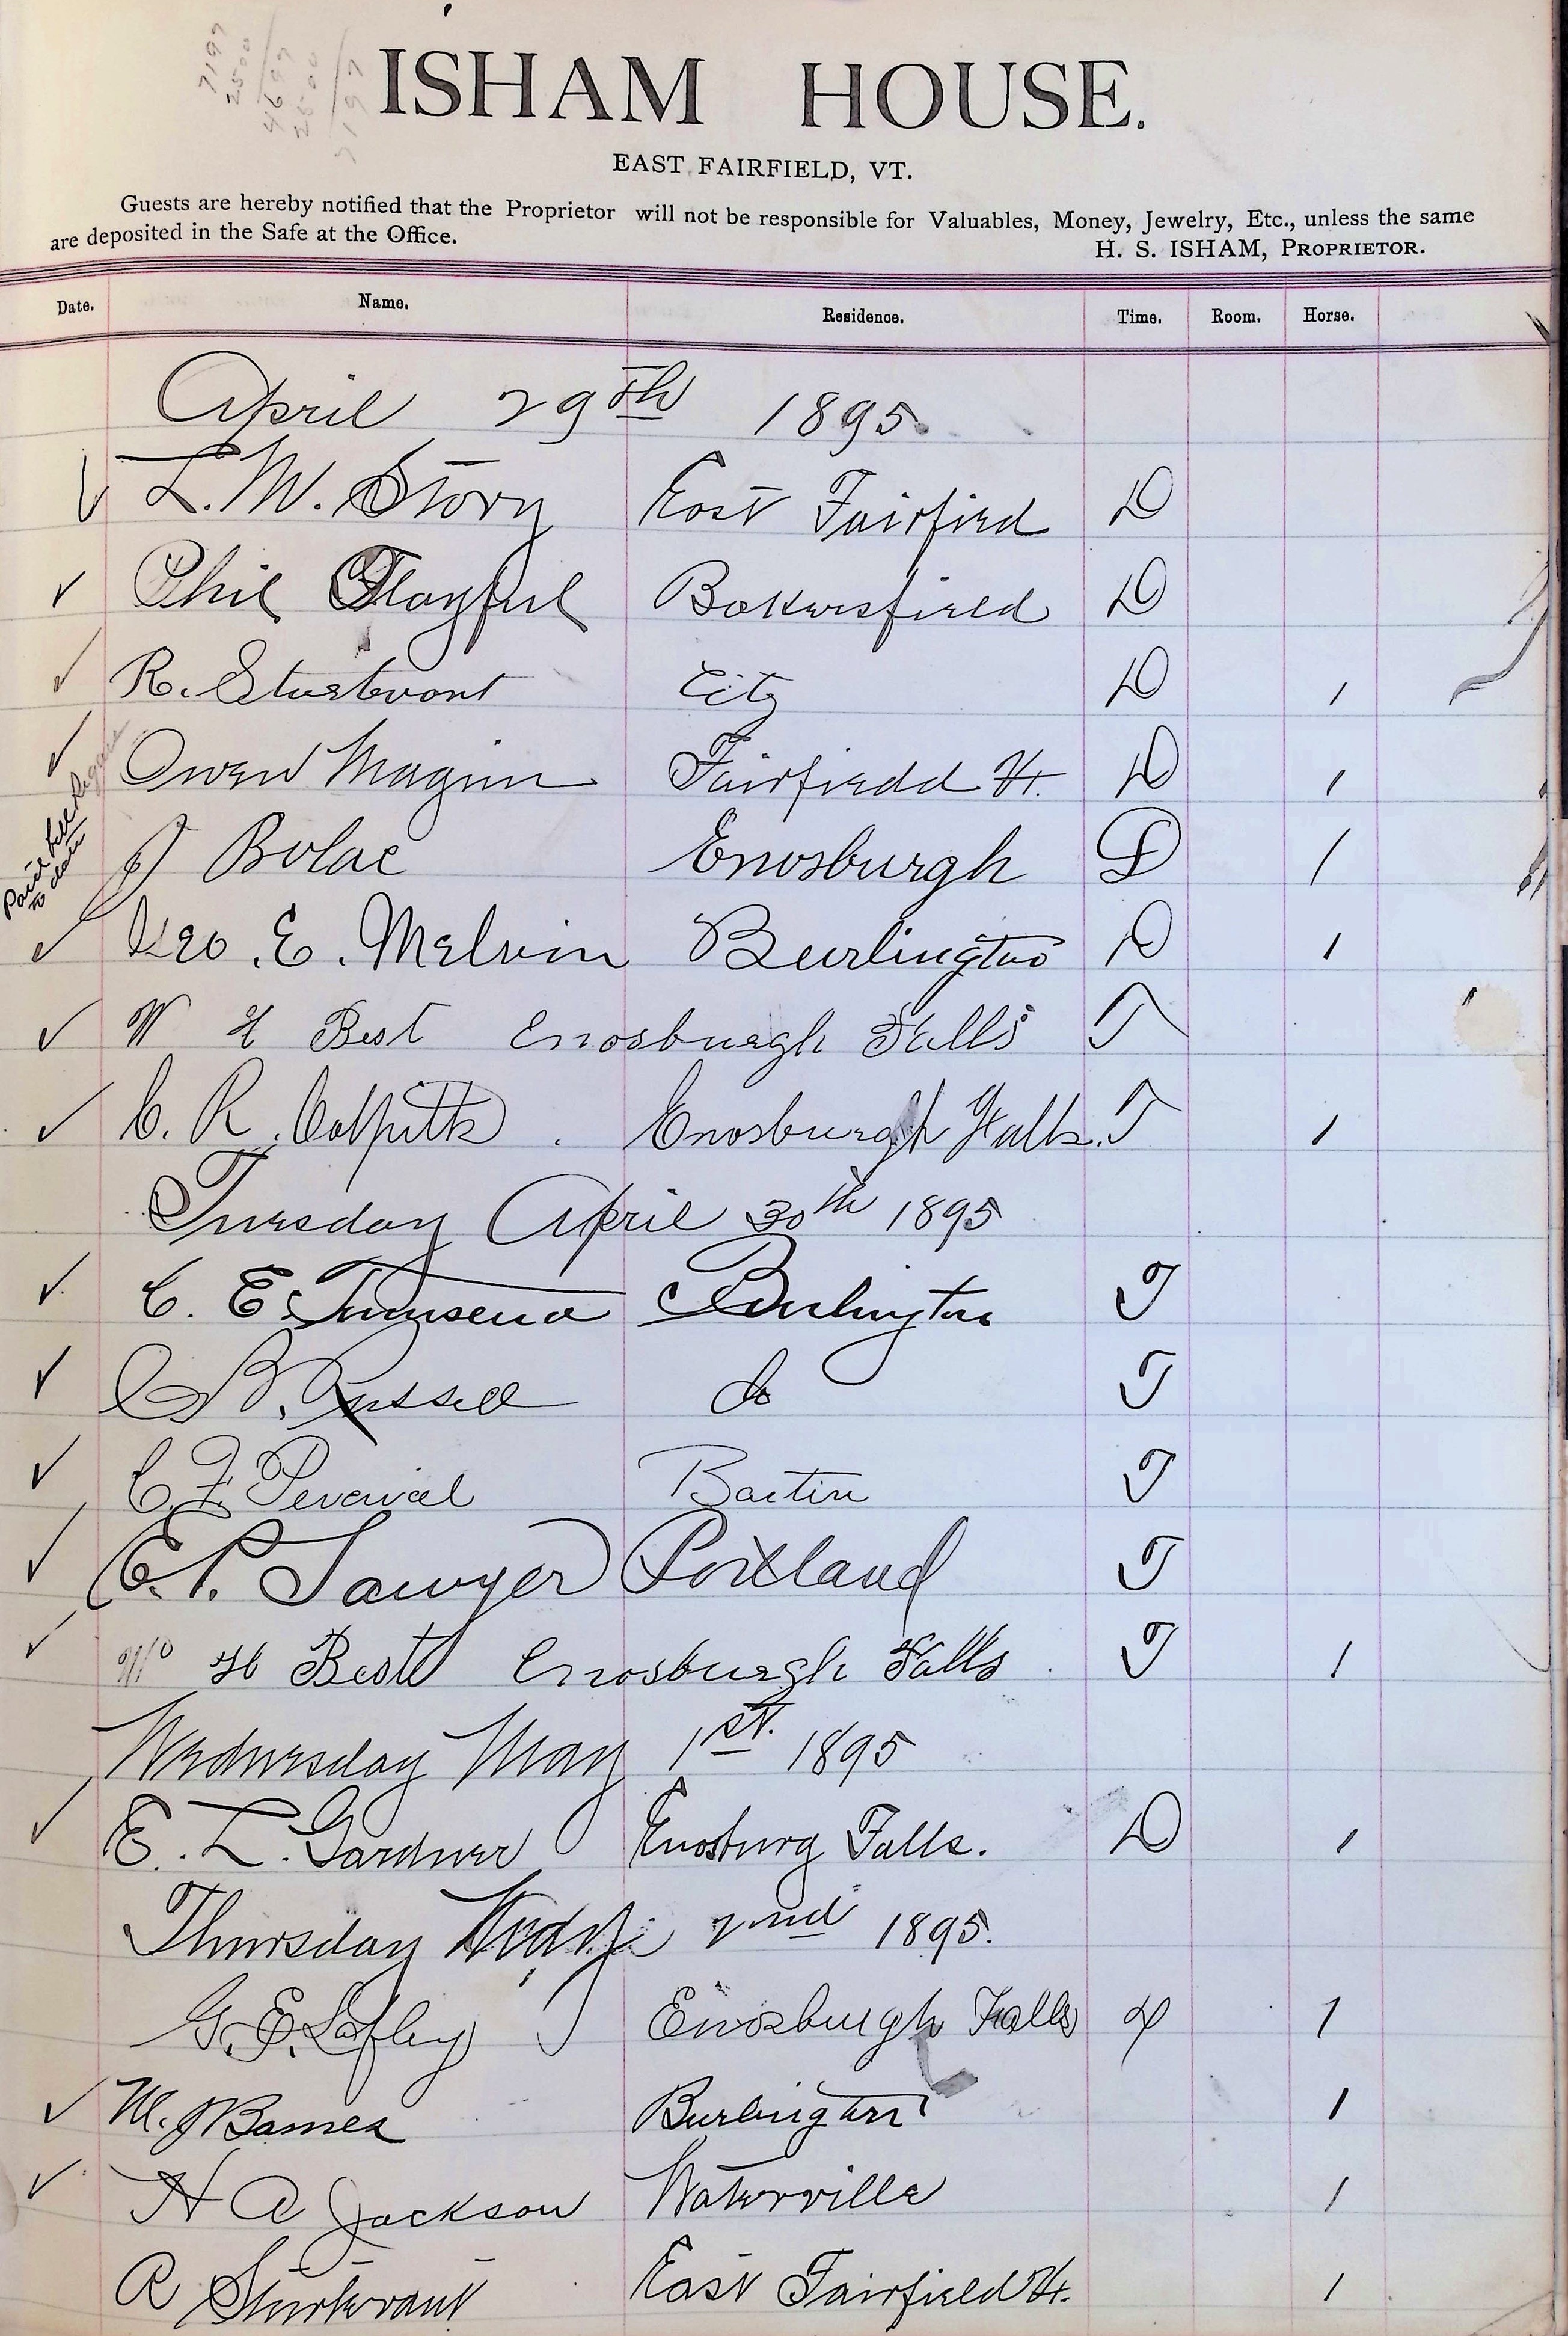 ISHAM HOUSE.
EAST FAIRFIELD, VT.
Guests are hereby notified that the Proprietor will not be responsible for Valuables, Money, Jewelry, Etc., unless the same
are deposited in the Safe at the Office.
H. S. ISHAM, PROPRIETOR.
Date. Name. Residence. Time. Room. Horse.
April 29th 1895
L. M. Story East Fairfied D
Phil Playful Bakersfield D
R. Sturtevant City D 1
Owen Maginn Fairfiedd Vt. D 1
Paid bill
to date
J Bolac Enosburgh D 1
Geo. E. Melvin Burlington D 1
W H Best Enosburgh Falls T
C. R. Colpitts Enosburgh Falls. T 1
Tuesday April 30th 1895
C. E. Townsend Burlington T
C B. Russell do T
C. F. Percival T
E. P. Sawyer Portland T
W H Best Enosburgh Falls T 1
Wednesday May 1st. 1895
E. L. Gardner Enosburg Falls. D 1
Thursday May 2nd 1895.
G. E. Enosburgh Falls 1
M. J Barnes Burlington 1
H A Jackson Waterville 1
R Sturtevant East Fairfield Vt. 1